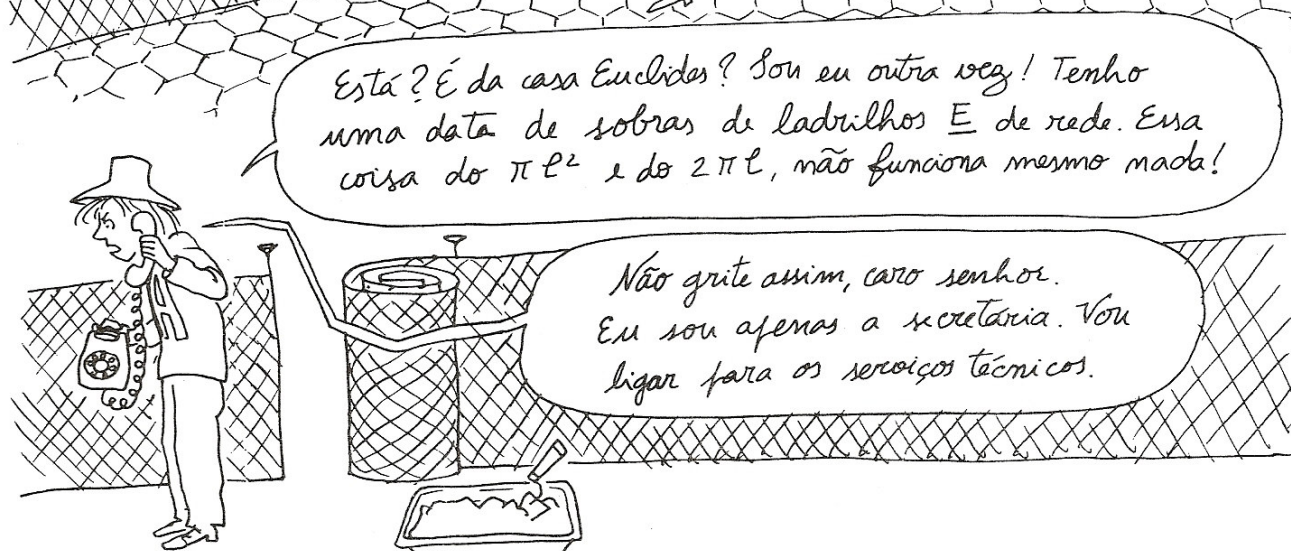 Está? É da casa Euclides? Sou eu outra vez! Tenho
uma data de sobras de ladrilhos E de rede. Essa
coisa do πℓ² e do 2πℓ, não funciona mesmo nada!
Não grite assim, caro senhor.
Eu sou apenas a secretária. Vou
ligar para os serviços técnicos.